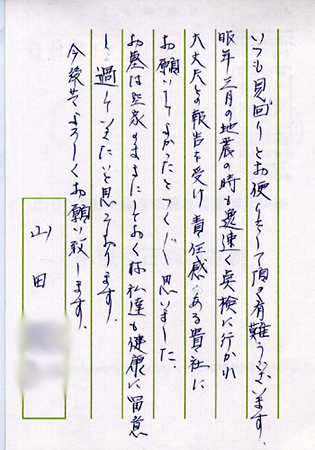 いつも見回りとお便りをして頂き有難うございます。
昨年三月の地震の時も逸速く点検に行かれ
大丈夫との報告を受け責任感ある貴社に
お願いしてよかったとつくづく思いました。
お墓は出家のままにしておく私達も健康に留意
し過していきたいと思っております。
今後共よろしくお願い致します。
山田